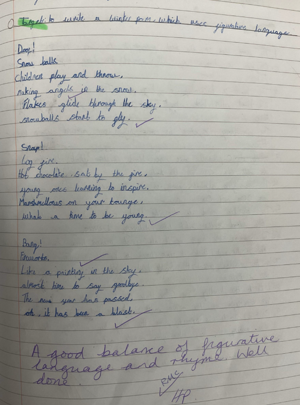 Target to write a winter poem which uses figurative language
Snow balls
Children play and throw.
making angels in the snow.
Flakes glide through the sky.
snowballs start to fly.
Snap!
Log fire.
Hot chocolate sat by the fire.
young ones learning to inspire.
Marshmallows on your tounge.
what a time to be young.
Bang!
Fireworks.
Like a painting in the sky.
almost time to say goodbye.
The new year has passed.
oh, it has been a blast.
A good balance of figurative
language and rhyme. Well
done.
HP.